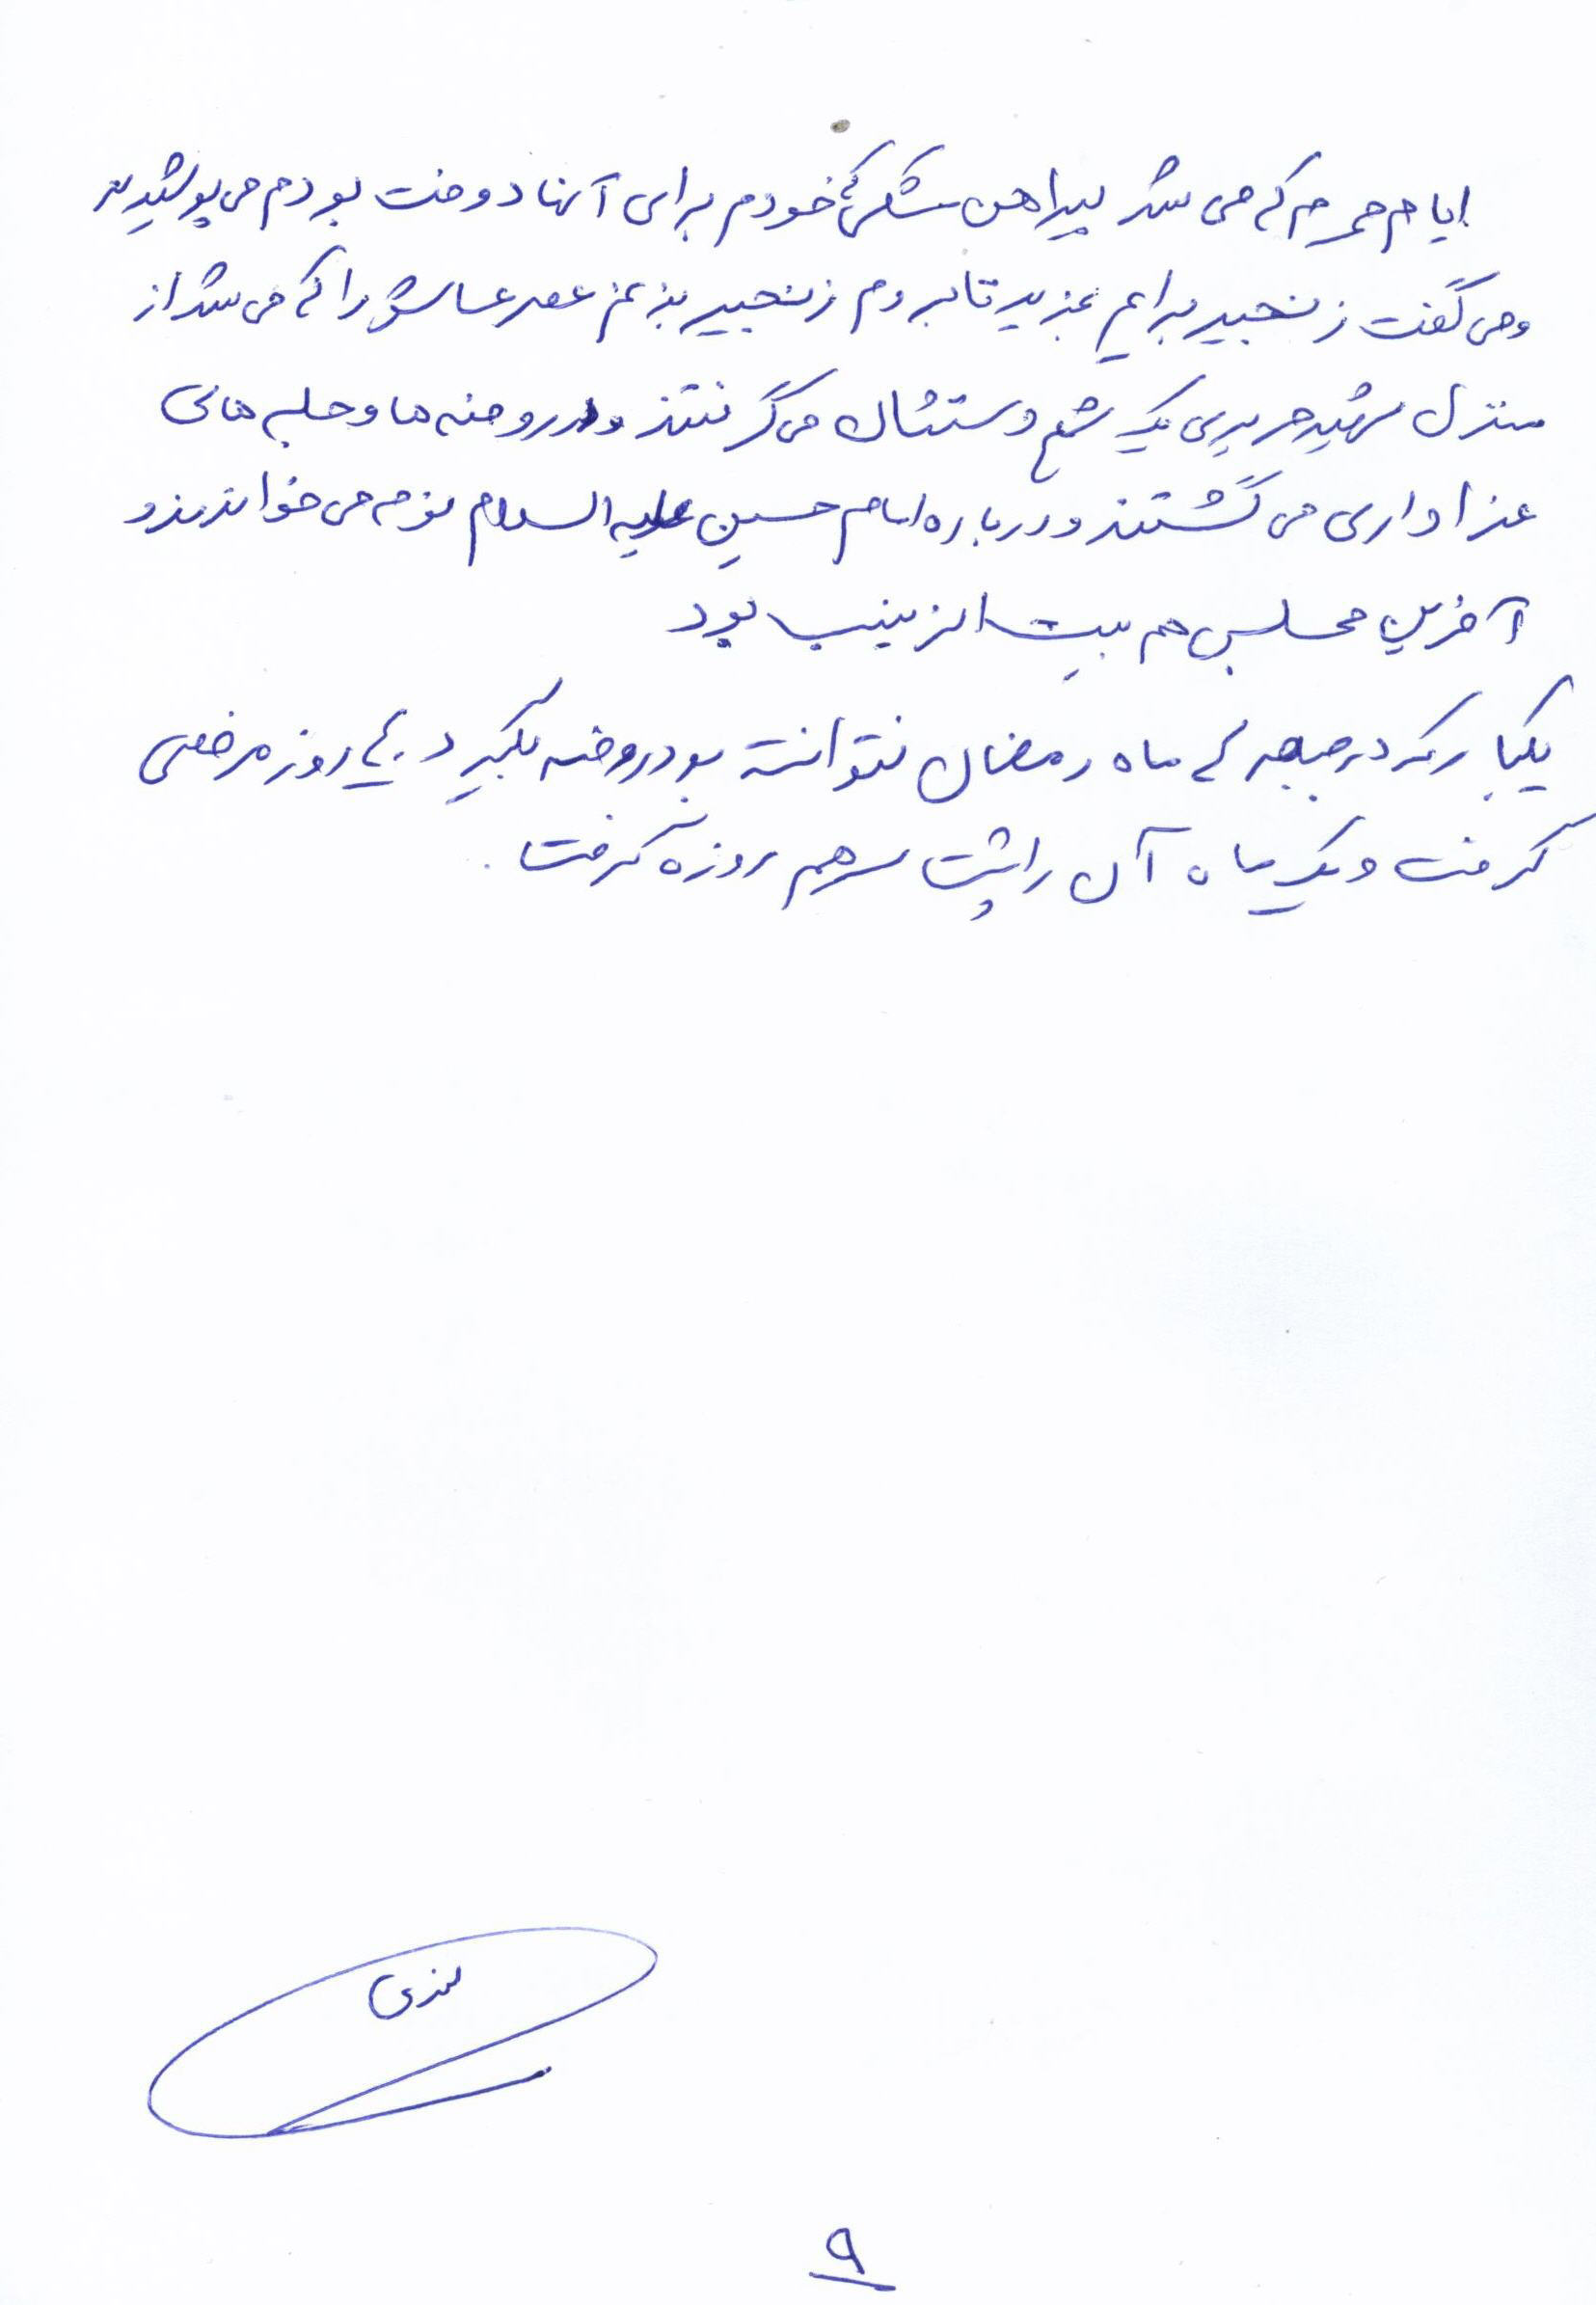 ایام محرم که می شد پیراهن مشکی که خودم برای آنها دوخت بودم می پوشیدند
و می گفت زنجیر برایم بخرید تا بروم زنجیر بزنم عصر عاشورا که می شد از
منزل شهید حریری یک شمع دستشان می گرفتند و در روضه ها و جلسه های
عزاداری می گشتند و درباره امام حسین علیه السلام نوحه می خواندند و
آخرین مجلس هم بیت الزینب بود
یکبار که در جبهه که ماه رمضان نتوانسته بود روزه بگیرد روز مرخصی
گرفت و یک ماه آن را پشت سر هم روزه گرفت.
۹